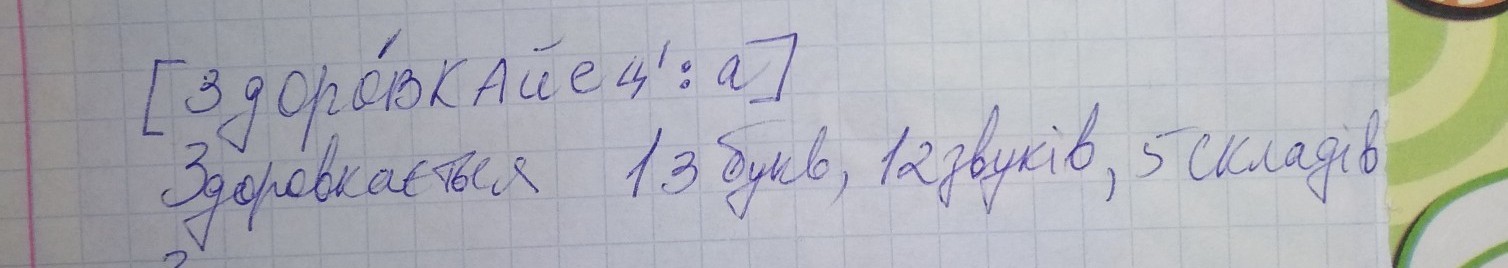 [здоро́вкайец':а]
Здоровкається 13 букв, 12 звуків, 5 складів